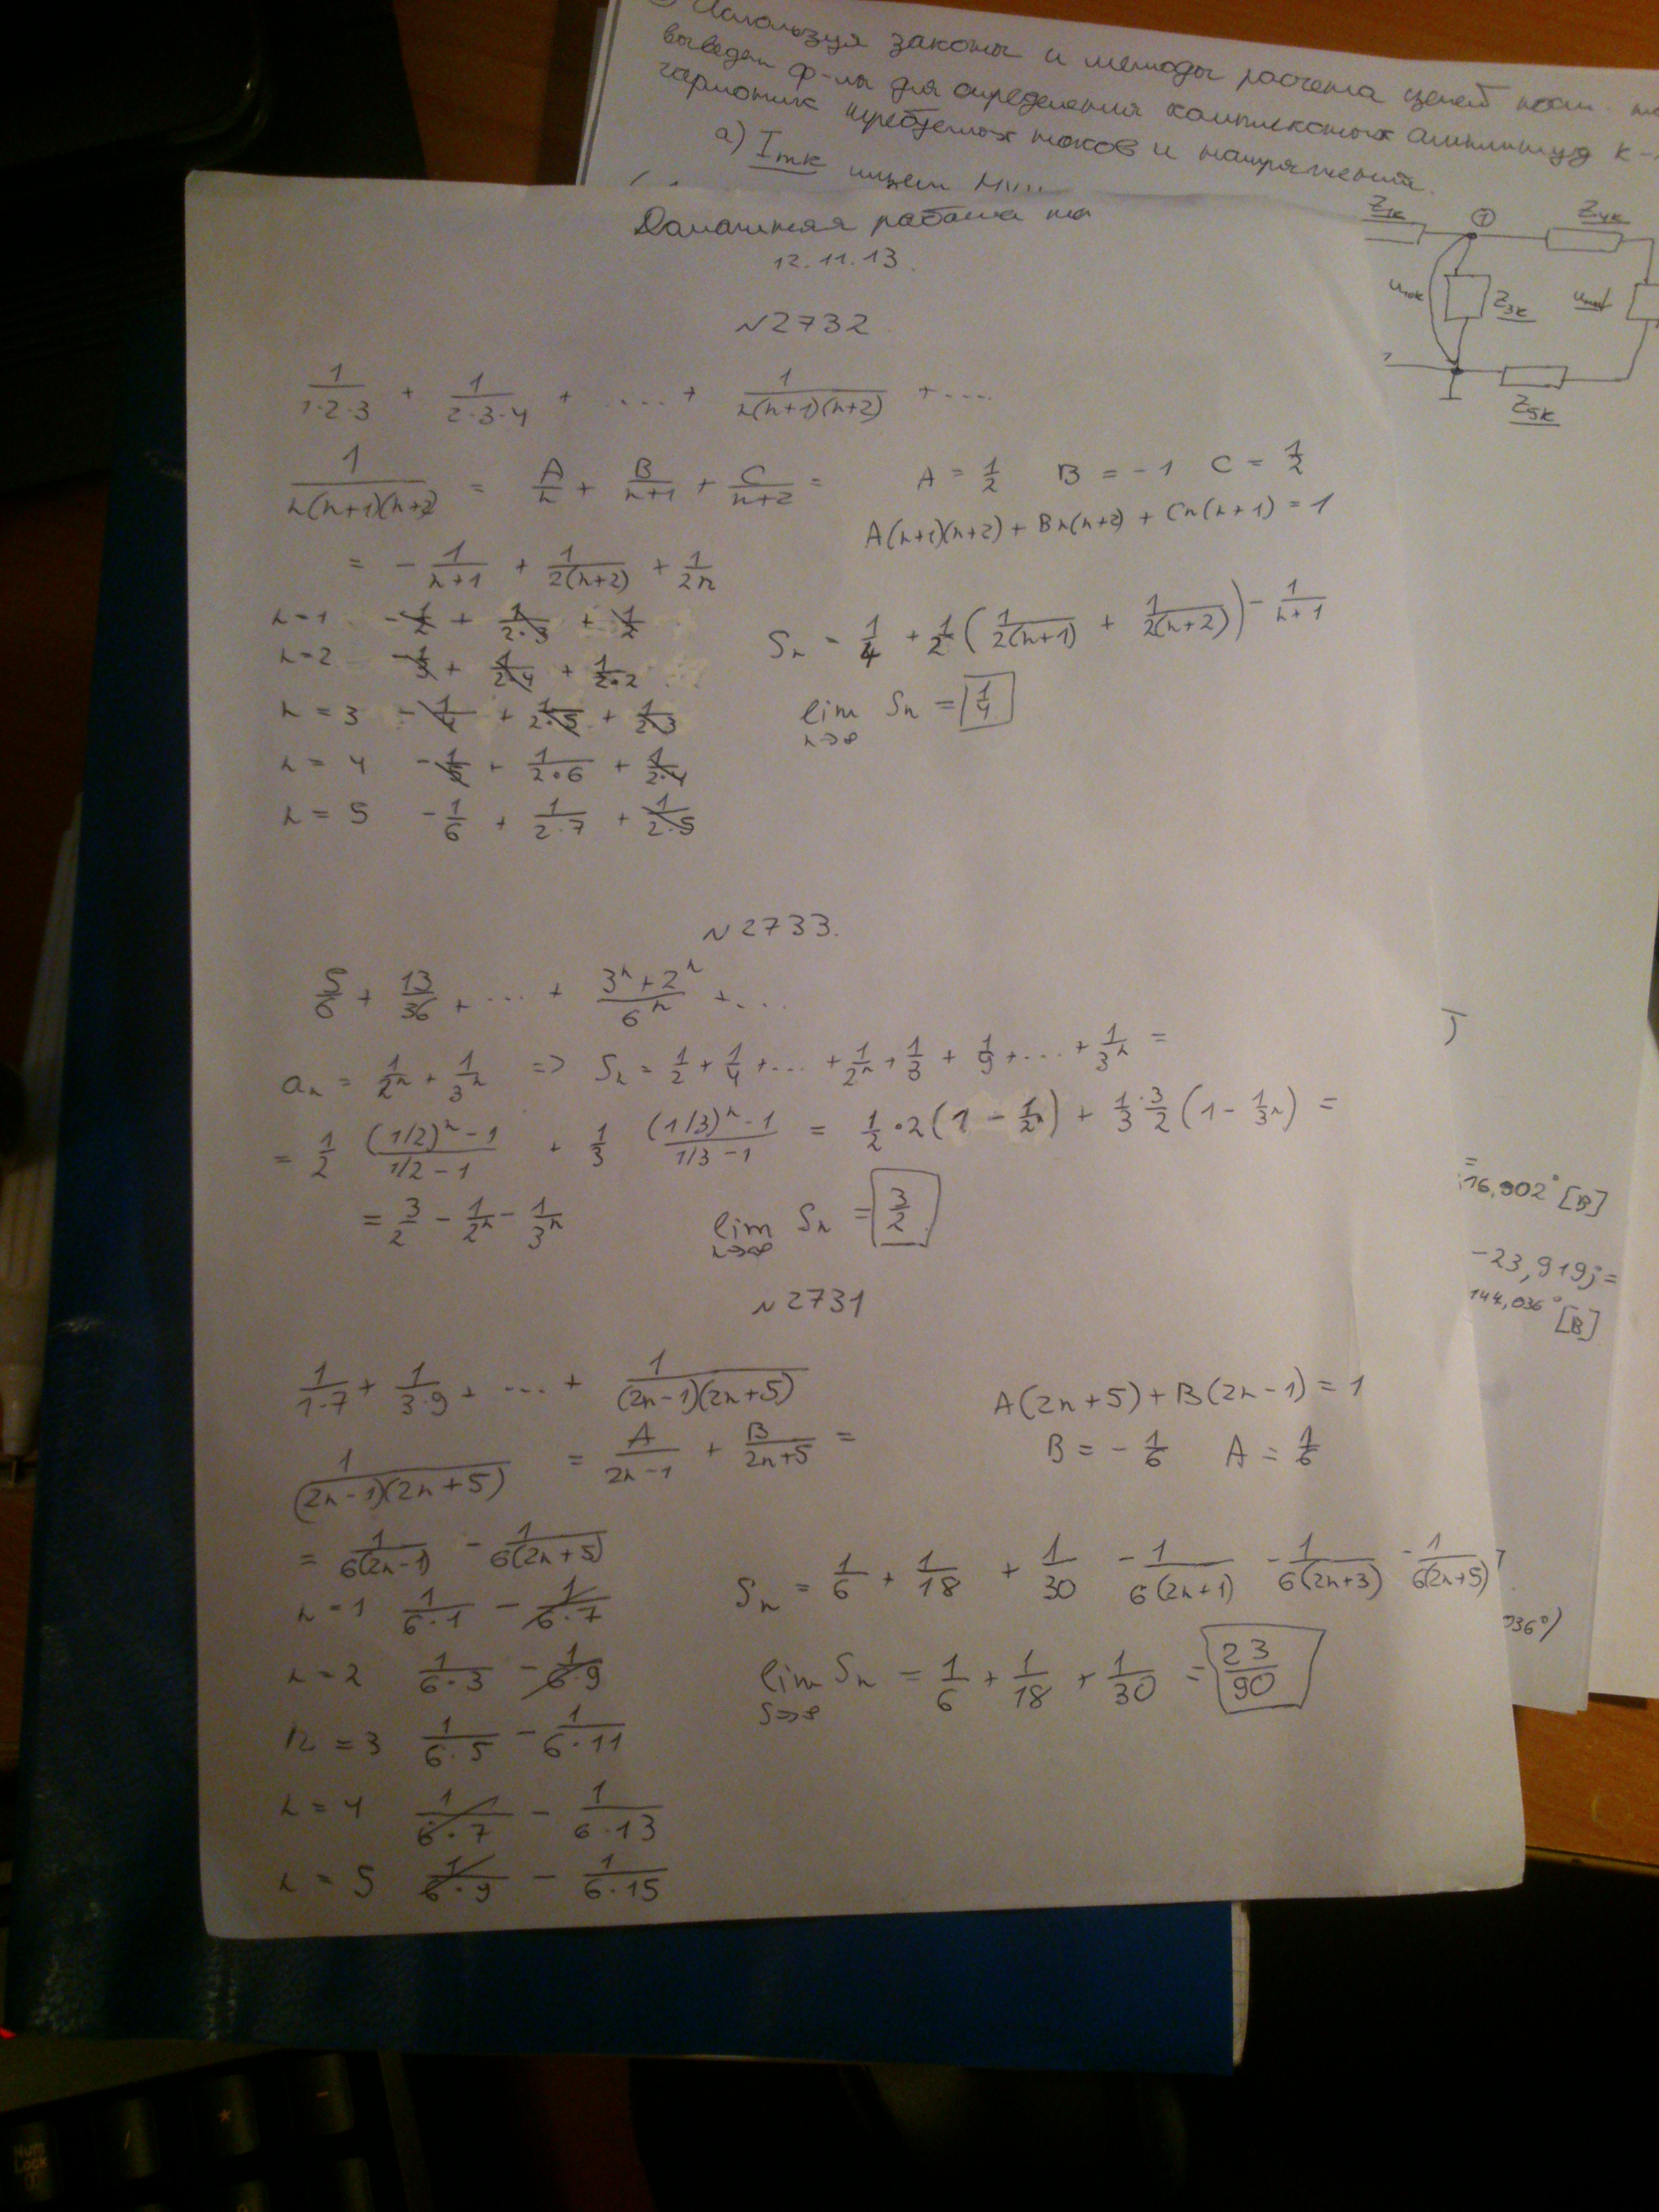 Используя законы и методы расчета цепей
выведем ф-лы для определения комплексных амплитуд к-
гармоник требуемых токов и напряжений.
а) Imк ищем
Z1к ① Z4к
Z3к
Z5к
Домашняя работа на
12.11.13.
N2732.
1/(1·2·3) + 1/(2·3·4) + .... + 1/(n(n+1)(n+2)) + ....
1/(n(n+1)(n+2)) = A/n + B/(n+1) + C/(n+2) =
A = 1/2 B = -1 C = 1/2
A(n+1)(n+2) + Bn(n+2) + Cn(n+1) = 1
= - 1/(n+1) + 1/(2(n+2)) + 1/(2n)
n=1 - 1/2 + 1/(2·3) + 1/2
n=2 - 1/3 + 1/(2·4) + 1/(2·2)
n = 3 - 1/4 + 1/(2·5) + 1/(2·3)
n = 4 - 1/5 + 1/(2·6) + 1/(2·4)
n = 5 - 1/6 + 1/(2·7) + 1/(2·5)
Sn = 1/4 + 1/2 (1/(2(n+1)) + 1/(2(n+2))) - 1/(n+1)
lim Sn = 1/4
n→∞
N2733.
5/6 + 13/36 + ... + (3^n + 2^n)/6^n + ...
an = 1/2^n + 1/3^n => Sn = 1/2 + 1/4 + ... + 1/2^n + 1/3 + 1/9 + ... + 1/3^n =
= 1/2 ((1/2)^n - 1)/(1/2 - 1) + 1/3 ((1/3)^n - 1)/(1/3 - 1) = 1/2 · 2(1 - 1/2^n) + 1/3 · 3/2 (1 - 1/3^n) =
= 3/2 - 1/2^n - 1/3^n
lim Sn = 3/2
n→∞
N2731
1/(1·7) + 1/(3·9) + ... + 1/((2n-1)(2n+5))
A(2n+5) + B(2n-1) = 1
1/((2n-1)(2n+5)) = A/(2n-1) + B/(2n+5) =
B = - 1/6 A = 1/6
= 1/(6(2n-1)) - 1/(6(2n+5))
n=1 1/(6·1) - 1/(6·7)
n=2 1/(6·3) - 1/(6·9)
n=3 1/(6·5) - 1/(6·11)
n=4 1/(6·7) - 1/(6·13)
n=5 1/(6·9) - 1/(6·15)
Sn = 1/6 + 1/18 + 1/30 - 1/(6(2n+1)) - 1/(6(2n+3)) - 1/(6(2n+5))
lim Sn = 1/6 + 1/18 + 1/30 = 23/90
S→∞
=
16,902° [В]
-23,919j=
144,036° [В]
036°)
Num
Lock
/
*
-